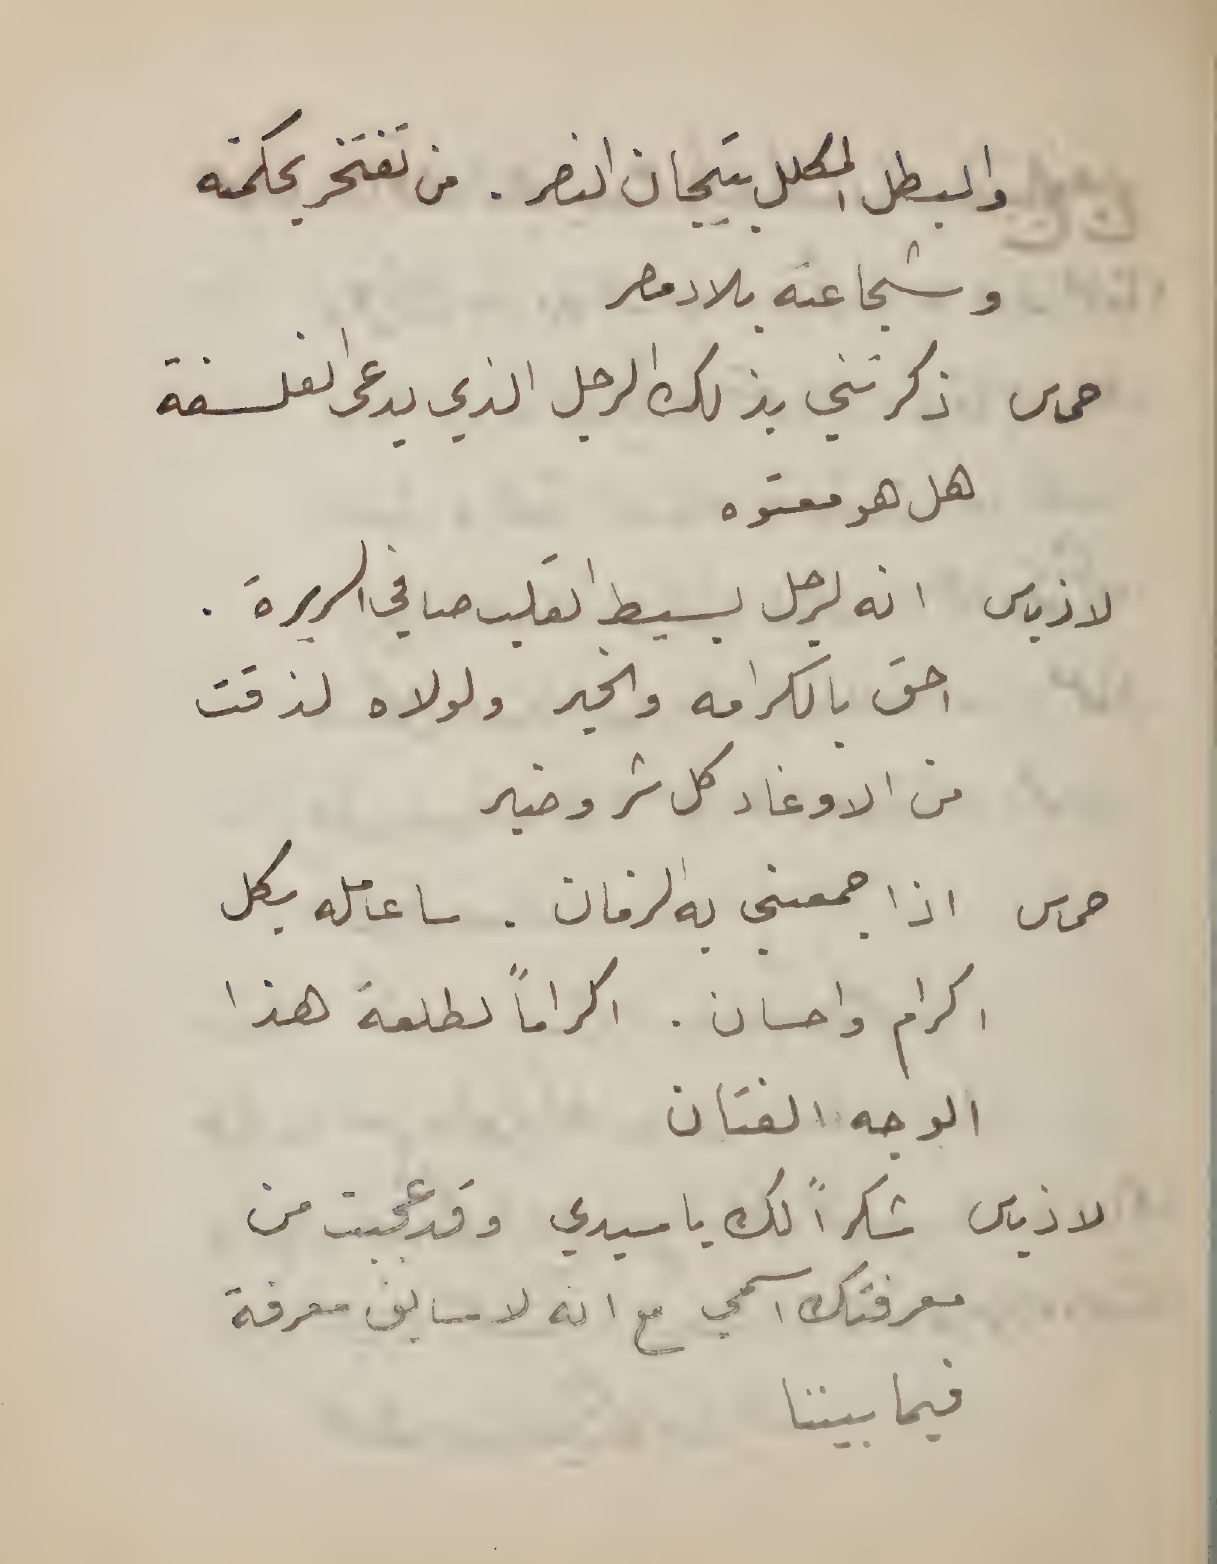 والبطل المكلل بتيجان النصر . من تفتخر بحكمته
وشجاعته بلاد مصر
حماس ذكرتني بذلك الرجل الذي يدعى الفلسفة
هل هو معتوه
لاذياس انه لرجل بسيط القلب صافي السريرة .
احق بالكرامه والخير ولولاه لذقت
من الاوغاد كل شر وضير
حماس اذا جمعني به الزمان . ساعامله بكل
اكرام واحسان . اكراماً لطلعة هذا
الوجه الفتان
لاذياس شكراً لك يا سيدي وقد عجبت من
معرفتك اسمي مع انه لا سابق معرفة
فيما بيننا